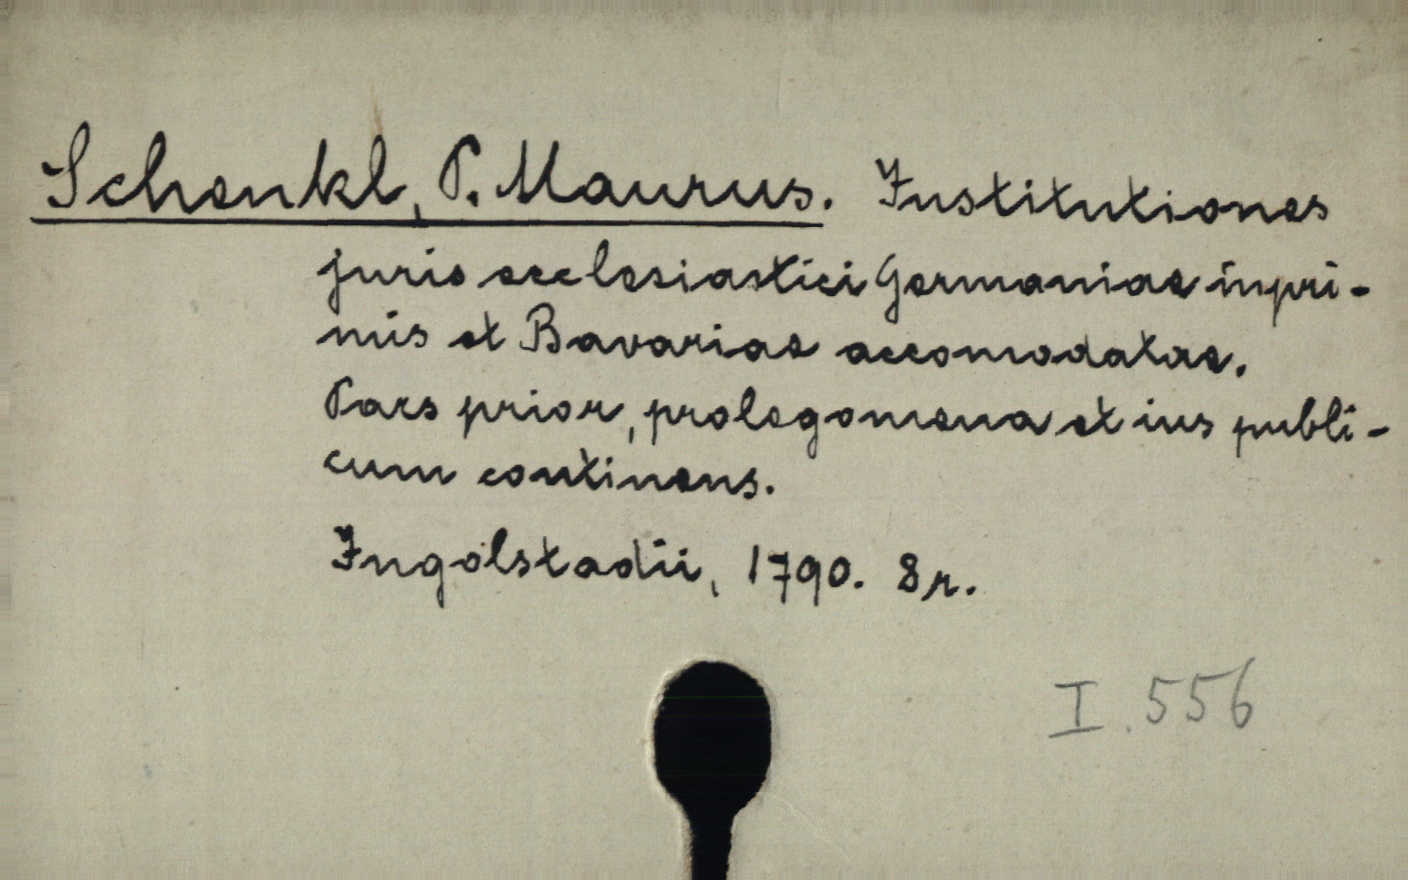 Schenkl, P. Maurus. Institutiones
juris ecclesiastici Germaniae inpri-
mis et Bavariae accomodatae.
Pars prior, prolegomena et ius publi-
cum continens.
Ingolstadii, 1790. 8r.
I. 556